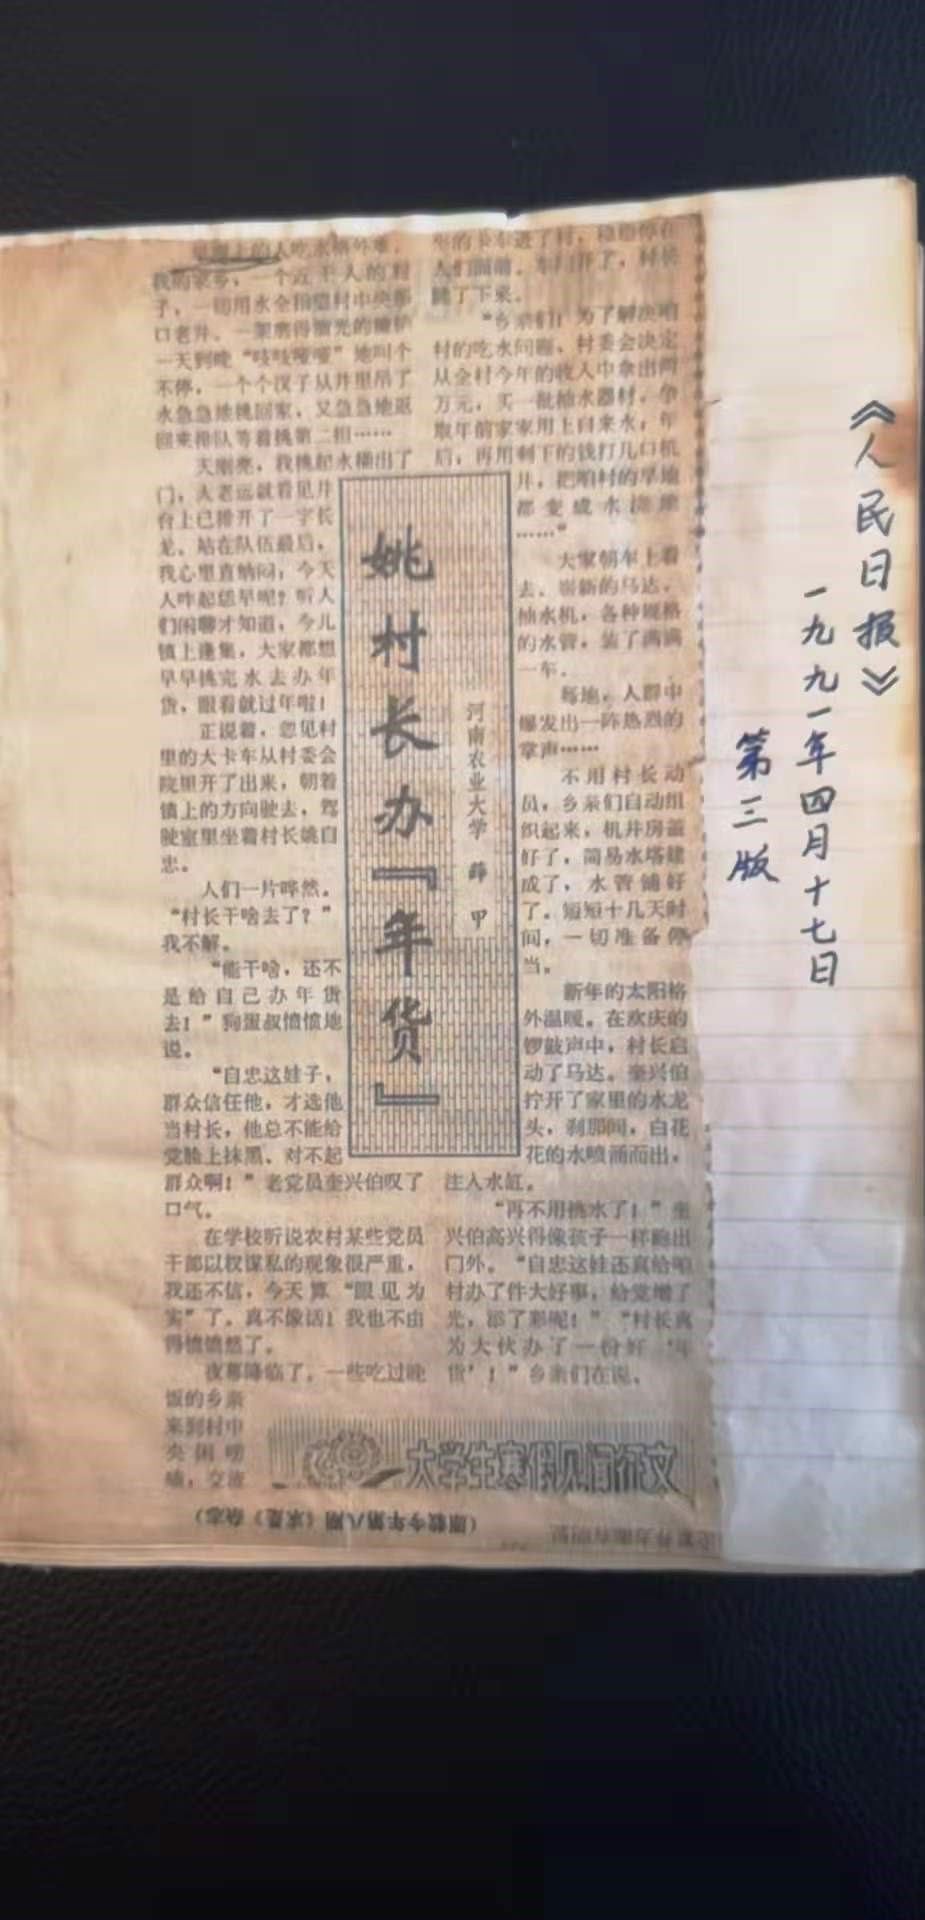 《人民日报》
一九九一年四月十七日
第三版
姚村长办『年货』
河南农业大学 薛甲
的人吃水格外难。
我的家乡，一个近千人的村
子，一切用水全指望村中央那
口老井。一架磨得油光的辘轳
一天到晚“吱吱哑哑”地叫个
不停，一个个汉子从井里吊了
水急急地挑回家，又急急地返
回来排队等着挑第二担……
天刚亮，我挑起水桶出了
门，大老远就看见井
台上已排开了一字长
龙。站在队伍最后，
我心里直纳闷：今天
人咋起恁早呢？听人
们闲聊才知道，今儿
镇上逢集，大家都想
早早挑完水去办年
货，眼看就过年啦！
正说着，忽见村
里的大卡车从村委会
院里开了出来，朝着
镇上的方向驶去，驾
驶室里坐着村长姚自
忠。
人们一片哗然。
“村长干啥去了？”
我不解。
“能干啥，还不
是给自己办年货
去！”狗蛋叔愤愤地
说。
“自忠这娃子，
群众信任他，才选他
当村长，他总不能给
党脸上抹黑、对不起
群众啊！”老党员奎兴伯叹了
口气。
在学校听说农村某些党员
干部以权谋私的现象很严重，
我还不信，今天算“眼见为
实”了。真不像话！我也不由
得愤愤然了。
夜幕降临了，一些吃过晚
饭的乡亲
来到村中
央闲唠
嗑，交流
的卡车进了村，稳稳停在
人们面前。车门开了，村长
跳了下来。
“乡亲们！为了解决咱
村的吃水问题，村委会决定
从全村今年的收入中拿出两
万元，买一批抽水器材，争
取年前家家用上自来水；年
后，再用剩下的钱打几口机
井，把咱村的旱地
都变成水浇地
……”
大家朝车上看
去，崭新的马达，
抽水机，各种规格
的水管，装了满满
一车。
蓦地，人群中
爆发出一阵热烈的
掌声……
不用村长动
员，乡亲们自动组
织起来，机井房盖
好了，简易水塔建
成了，水管铺好
了。短短十几天时
间，一切准备停
当。
新年的太阳格
外温暖。在欢庆的
锣鼓声中，村长启
动了马达。奎兴伯
拧开了家里的水龙
头，刹那间，白花
花的水喷涌而出，
注入水缸。
“再不用挑水了！”奎
兴伯高兴得像孩子一样跑出
门外。“自忠这娃还真给咱
村办了件大好事，给党增了
光，添了彩呢！”“村长真
为大伙办了一份好‘年
货’！”乡亲们在说。
大学生寒假见闻征文
（原载今年第八期《求是》杂志）